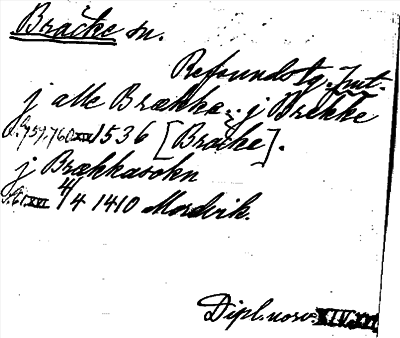 Bräcke sn.
Refsundstg. Jmt.
j alle Brække; j Brekke
S. 759, 760 XIV 1536 [Bräcke].
j Brækkasokn
S. 61 XVI 4/4 1410 Mordvik.
Dipl. norv. XIV, XVI